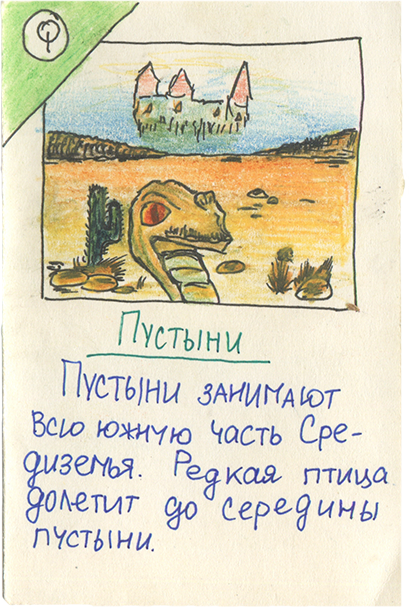 Пустыни
Пустыни занимают
Всю южную часть Сре-
диземья. Редкая птица
долетит до середины
пустыни.